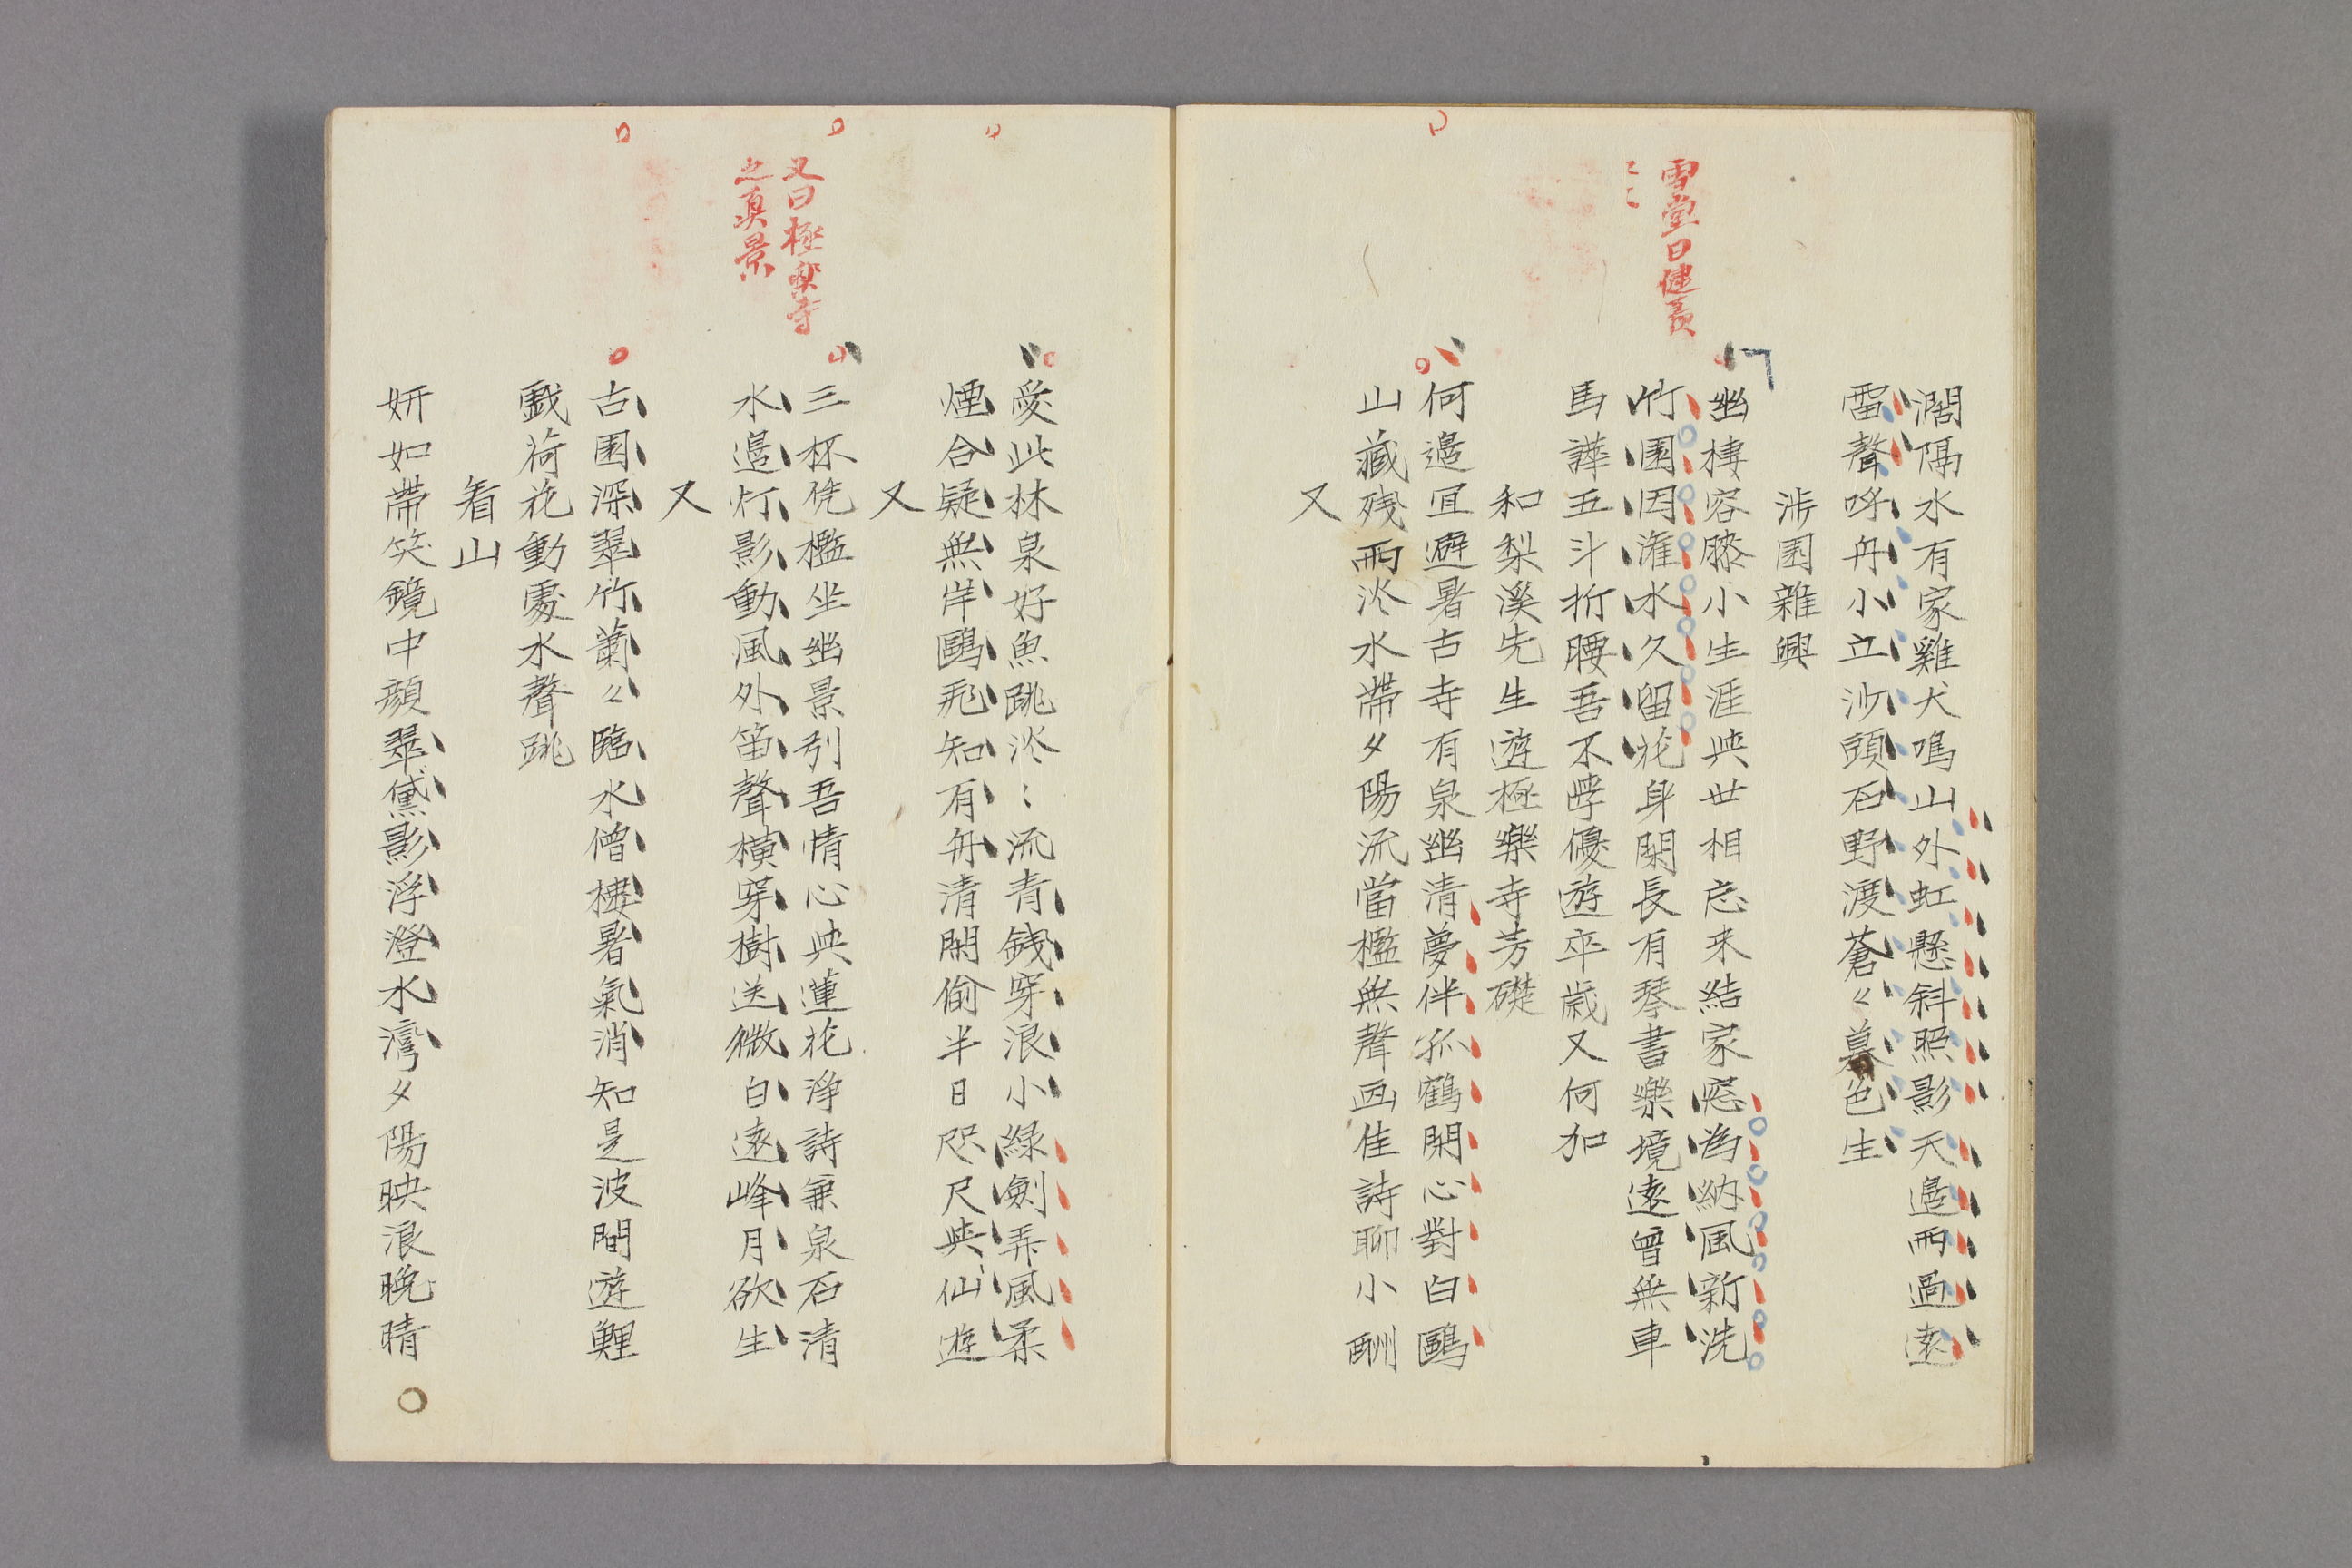 濶隔水有家雞犬鳴山外虹懸斜照影天邉雨過遠
雷聲呼舟小立沙頭石野渡蒼々暮色生
渉園雜興
雪堂曰健羨
々々
幽棲容膝小生涯與世相忘来結家窓為納風新洗
竹園因潅水久留花身閑長有琴書樂境遠曽無車
馬譁五斗折腰吾不孛優遊卒歳又何加
和梨溪先生遊極樂寺芳礎
何邉冝避暑古寺有泉幽清夢伴孤鶴閑心對白鷗
山蔵残雨淡水帶夕陽流當檻無聲画佳詩聊小酬
又
愛此林泉好魚跳淡〻流青銭穿浪小緑劍弄風柔
煙合疑無岸鷗飛知有舟清閑偷半日咫尺與仙遊
又
又曰極樂寺
之真景
三杯凭檻坐幽景引吾情心與蓮花浄詩兼泉石清
水邉灯影動風外笛聲横穿樹送微白遠峰月欲生
又
古園深翠竹蘭々臨水僧樓暑氣消知是波間遊鯉
戯荷花動處水聲跳
看山
妍如帶笑鏡中顔翠黛影浮澄水灣夕陽映浪晩晴